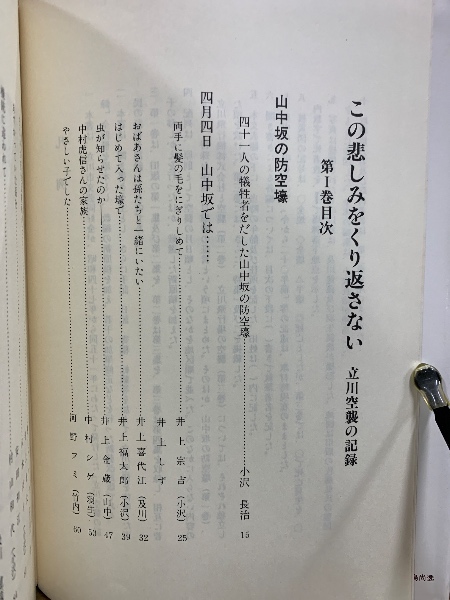 この悲しみをくり返さない 立川空襲の記録
第Ⅰ巻目次
山中坂の防空壕
四十一人の犠牲者をだした山中坂の防空壕……小沢 長治 15
四月四日 山中坂では……
両手に髪の毛をにぎりしめて……井上宗吉(小沢) 25
井上しず
おばあさんは孫たちと一緒にいたい……井上喜代江(及川) 32
はじめて入った壕で……井上福太郎(小沢) 39
虫が知らせたのか――……井上金蔵(山中) 47
中村虎信さんの家族……中村シゲ(羽生) 53
やさしい子でした……河野フミ(竹内) 60